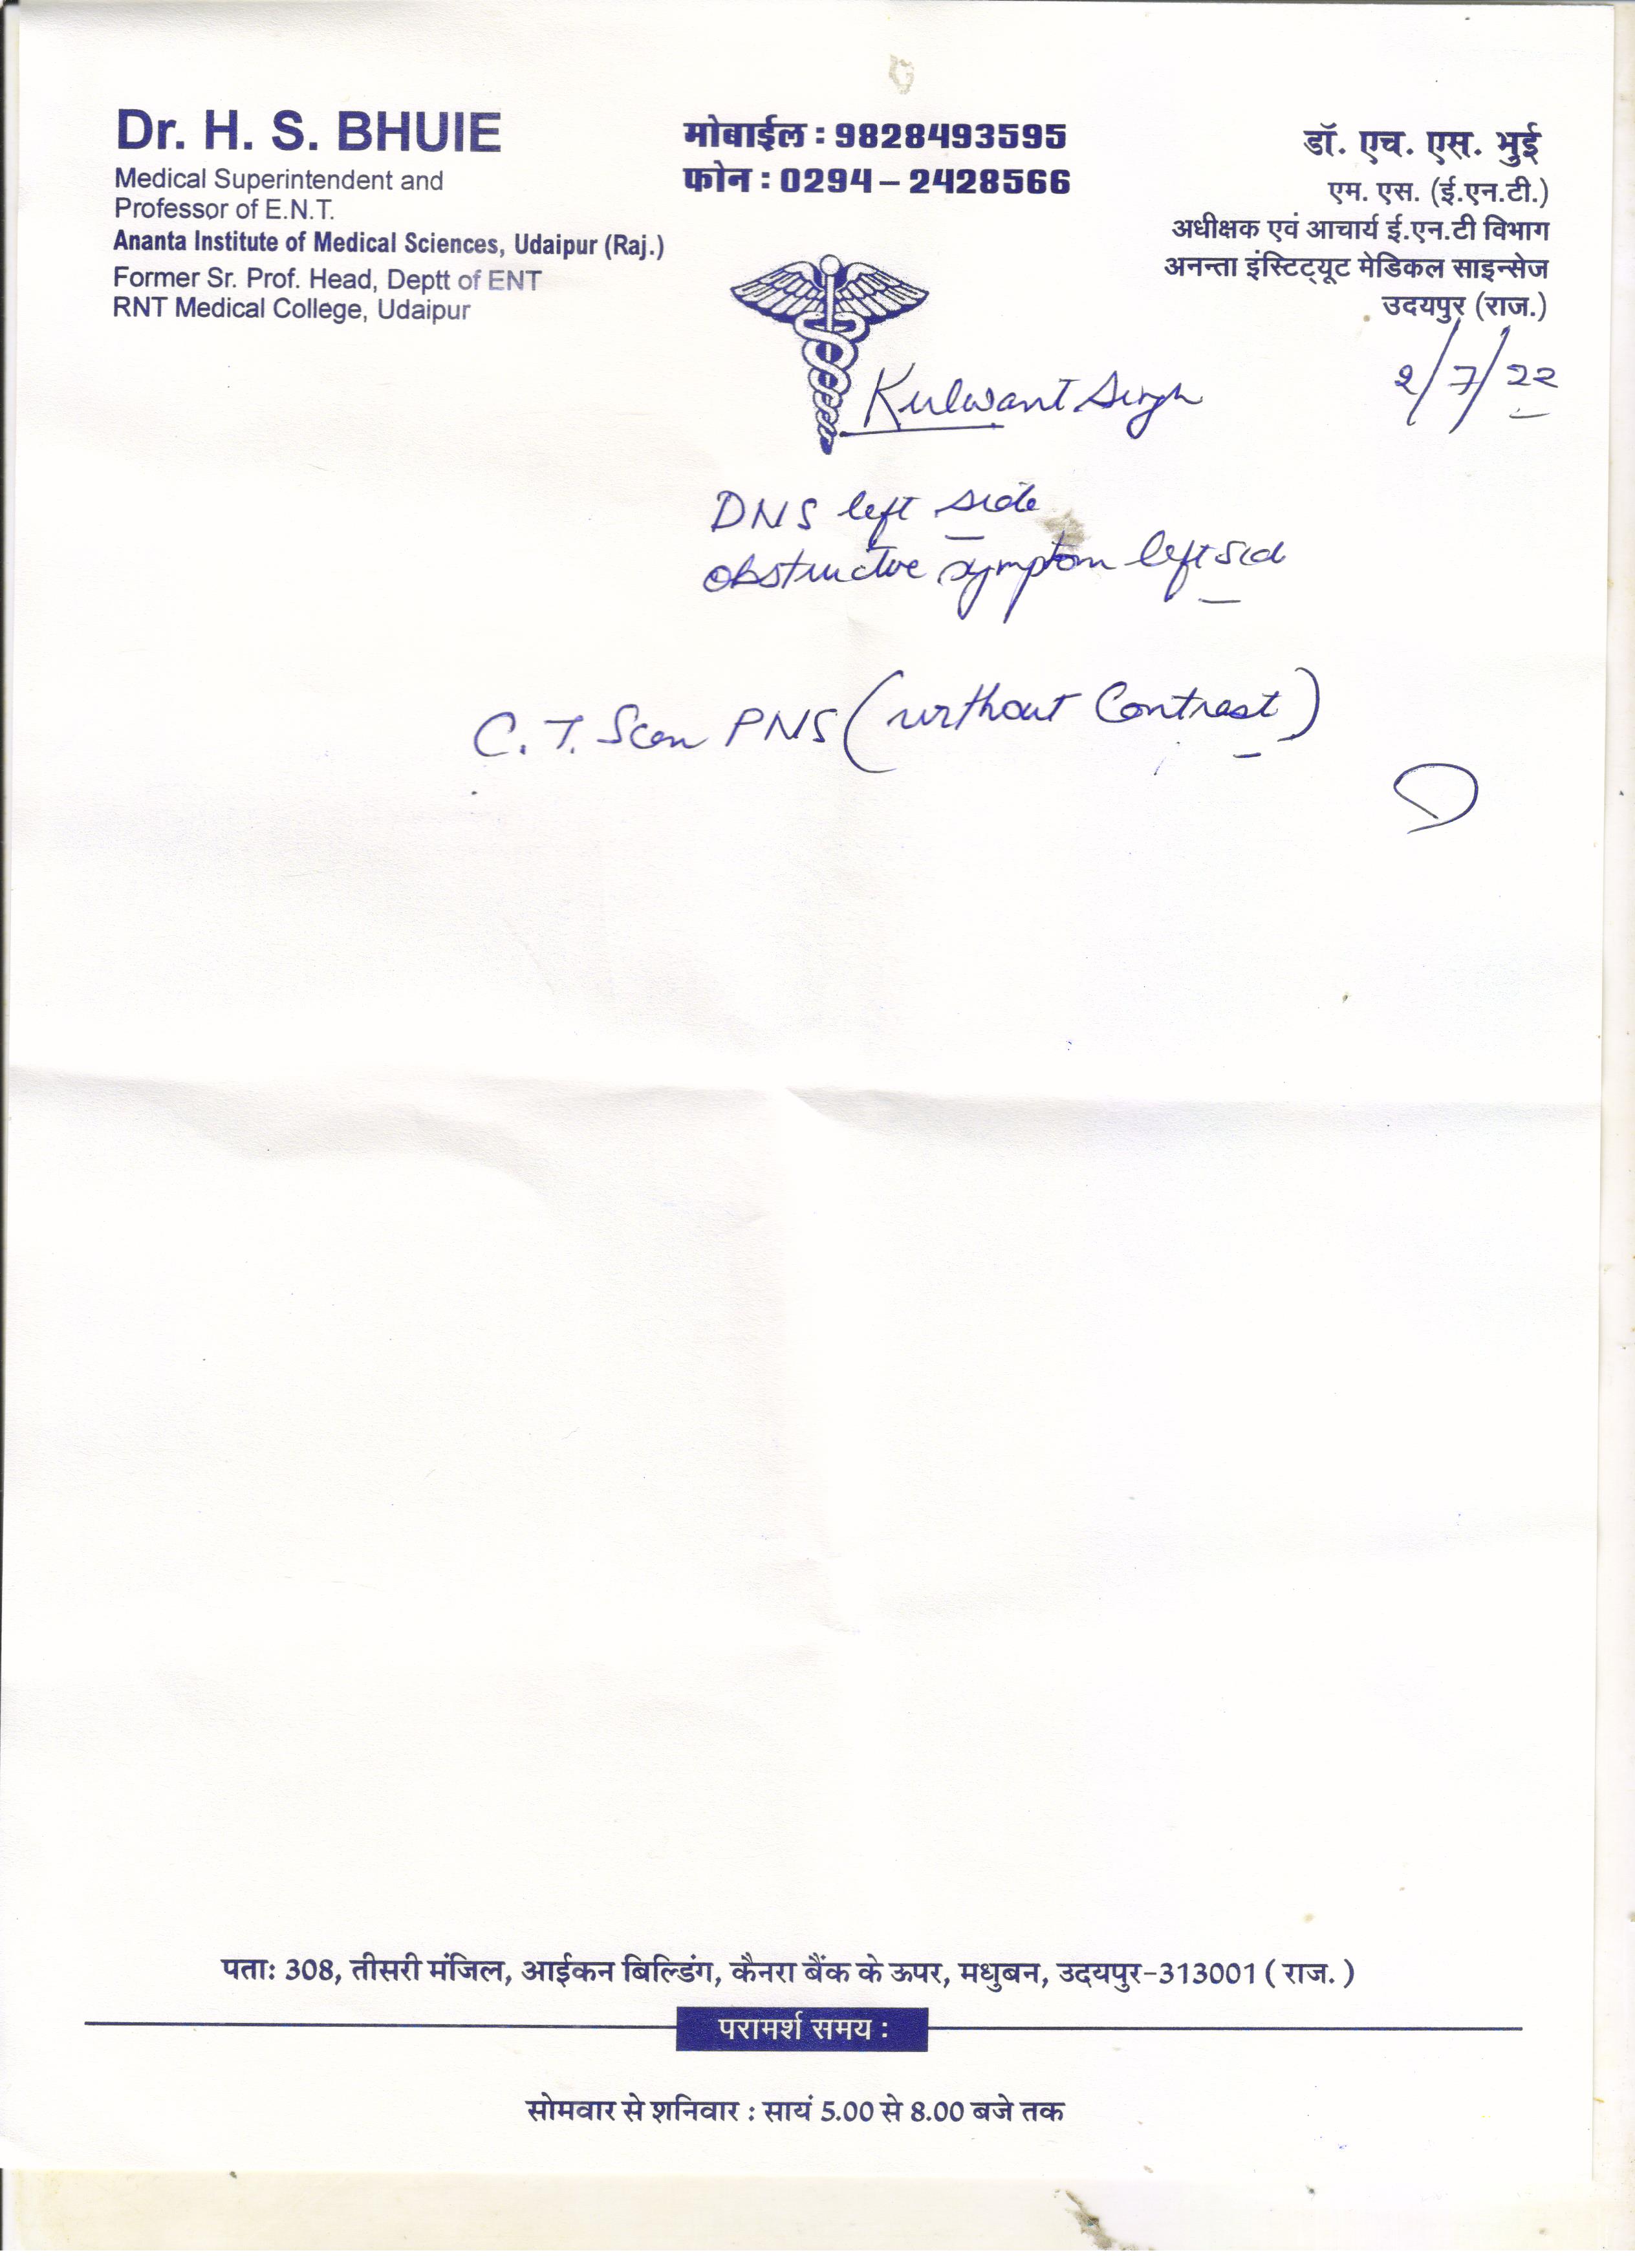 Dr. H. S. BHUIE
Medical Superintendent and
Professor of E.N.T.
Ananta Institute of Medical Sciences, Udaipur (Raj.)
Former Sr. Prof. Head, Deptt of ENT
RNT Medical College, Udaipur
मोबाईल : 9828493595
फोन : 0294 – 2428566
डॉ. एच. एस. भुई
एम. एस. (ई.एन.टी.)
अधीक्षक एवं आचार्य ई.एन.टी विभाग
अनन्ता इंस्टिट्यूट मेडिकल साइन्सेज
उदयपुर (राज.)
2/7/22
Kulwant Singh
DNS left side
obstructive symptom left sid
C. T. Scan PNS (without Contrast)
पताः 308, तीसरी मंजिल, आईकन बिल्डिंग, कैनरा बैंक के ऊपर, मधुबन, उदयपुर-313001 ( राज. )
परामर्श समय :
सोमवार से शनिवार : सायं 5.00 से 8.00 बजे तक